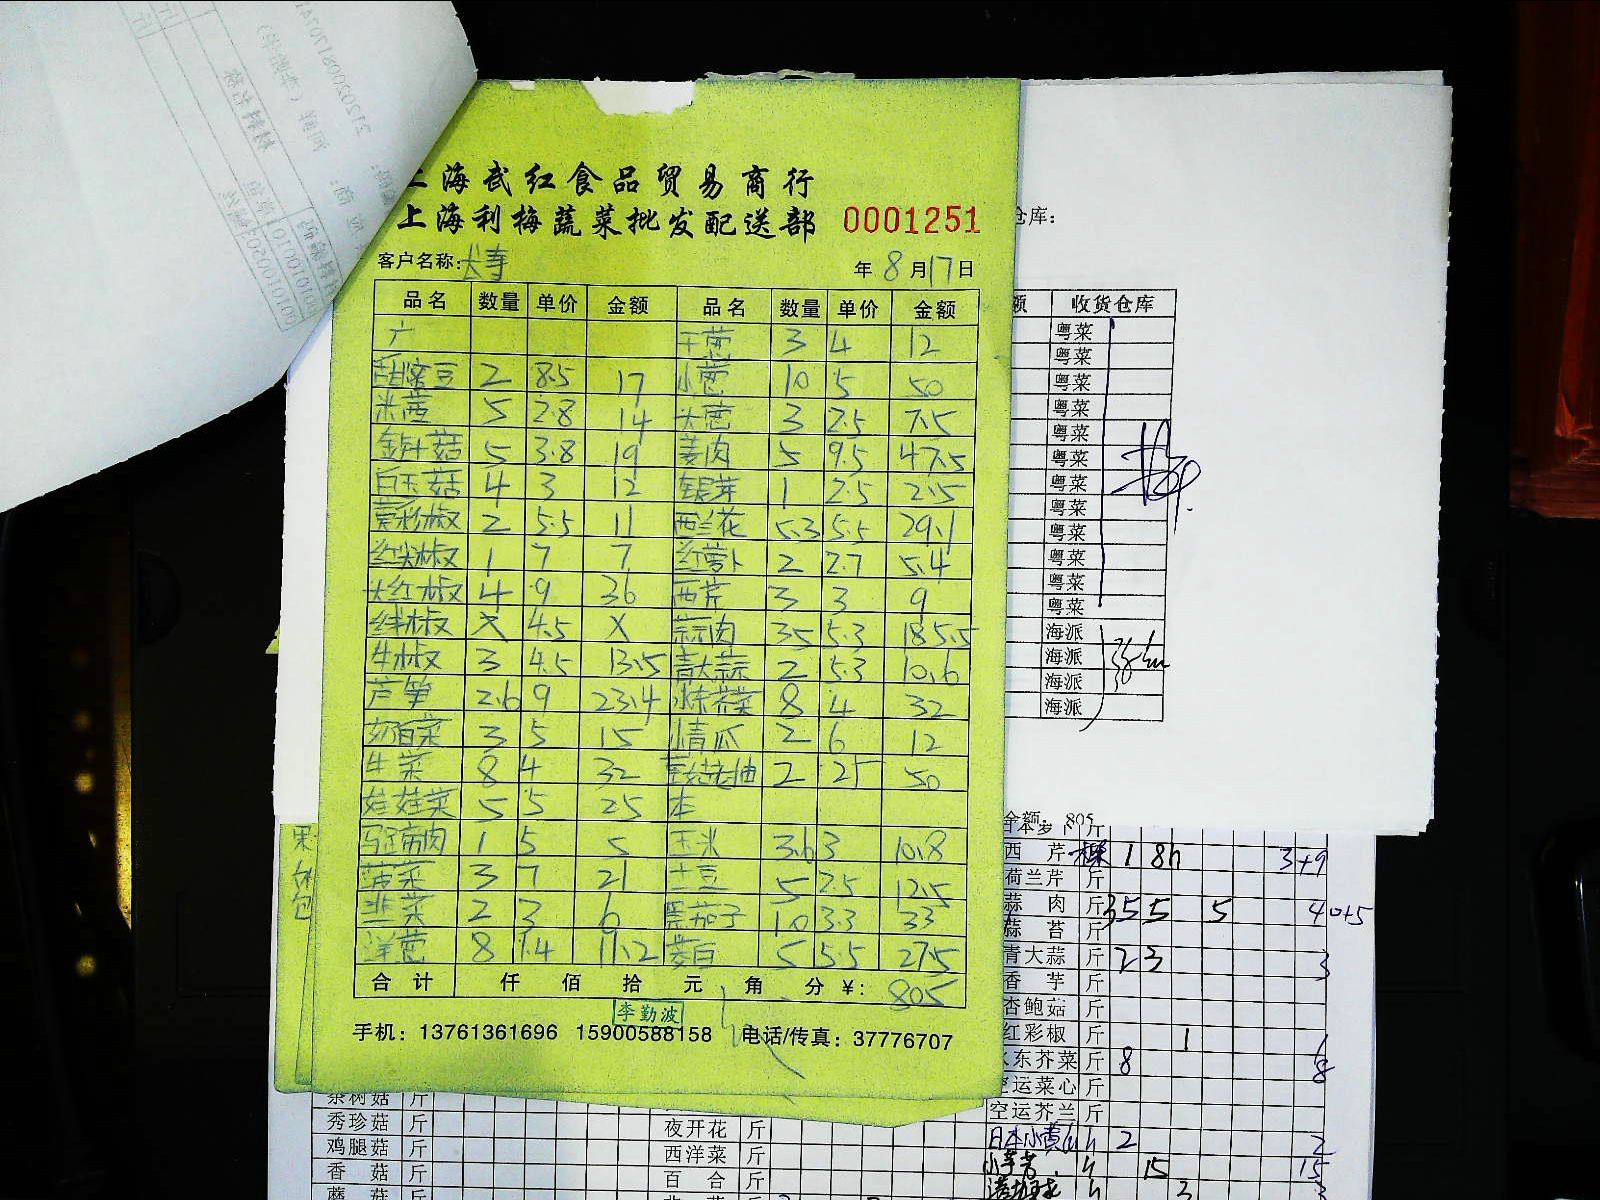 上海武红食品贸易商行
上海利梅蔬菜批发配送部 0001251
客户名称:长寿 年 8 月 17 日
品名 数量 单价 金额 品名 数量 单价 金额
广 干葱 3 4 12
甜蜜豆 2 8.5 17 小葱 10 5 50
米茜 5 2.8 14 大葱 3 2.5 7.5
金针菇 5 3.8 19 姜肉 5 9.5 47.5
白玉菇 4 3 12 银芽 1 2.5 2.5
黄彩椒 2 5.5 11 西兰花 5.3 5.5 29.1
红尖椒 1 7 7 红萝卜 2 2.7 5.4
大红椒 4 9 36 西芹 3 3 9
绊椒 X 4.5 X 蒜肉 35 5.3 185.5
牛椒 3 4.5 13.5 青大蒜 2 5.3 10.6
芦笋 2.6 9 23.4 水东芥菜 8 4 32
奶白菜 3 5 15 小青瓜 2 6 12
生菜 8 4 32 2 25 50
娃娃菜 5 5 25 本
马蹄肉 1 5 5 玉米 3.6 3 10.8
菠菜 3 7 21 土豆 5 2.5 12.5
韭菜 2 3 6 黑茄子 10 3.3 33
洋葱 8 1.4 11.2 茭白 5 5.5 27.5
合计 仟 佰 拾 元 角 分 ¥: 805
李勤波
手机：13761361696 15900588158 电话/传真：37776707
仓库：
额 收货仓库
粤菜
粤菜
粤菜
粤菜
粤菜
粤菜
粤菜
粤菜
粤菜
粤菜
粤菜
粤菜
海派
海派
海派
海派
金额：805
日本萝卜 斤
西芹 1 8h 3+9
荷兰芹 斤
蒜肉 斤 35 5 5 40+5
蒜苔 斤
青大蒜 斤 2 3 3
香芋 斤
杏鲍菇 斤
红彩椒 斤 1 1
水东芥菜 斤 8 8
空运菜心 斤
空运芥兰 斤
日本小黄瓜 h 2 2
小芋艿 h 15 15
h 3 3
茶树菇 斤
秀珍菇 斤 夜开花 斤
鸡腿菇 斤 西洋菜 斤
香菇 斤 百合 斤
蘑菇 斤